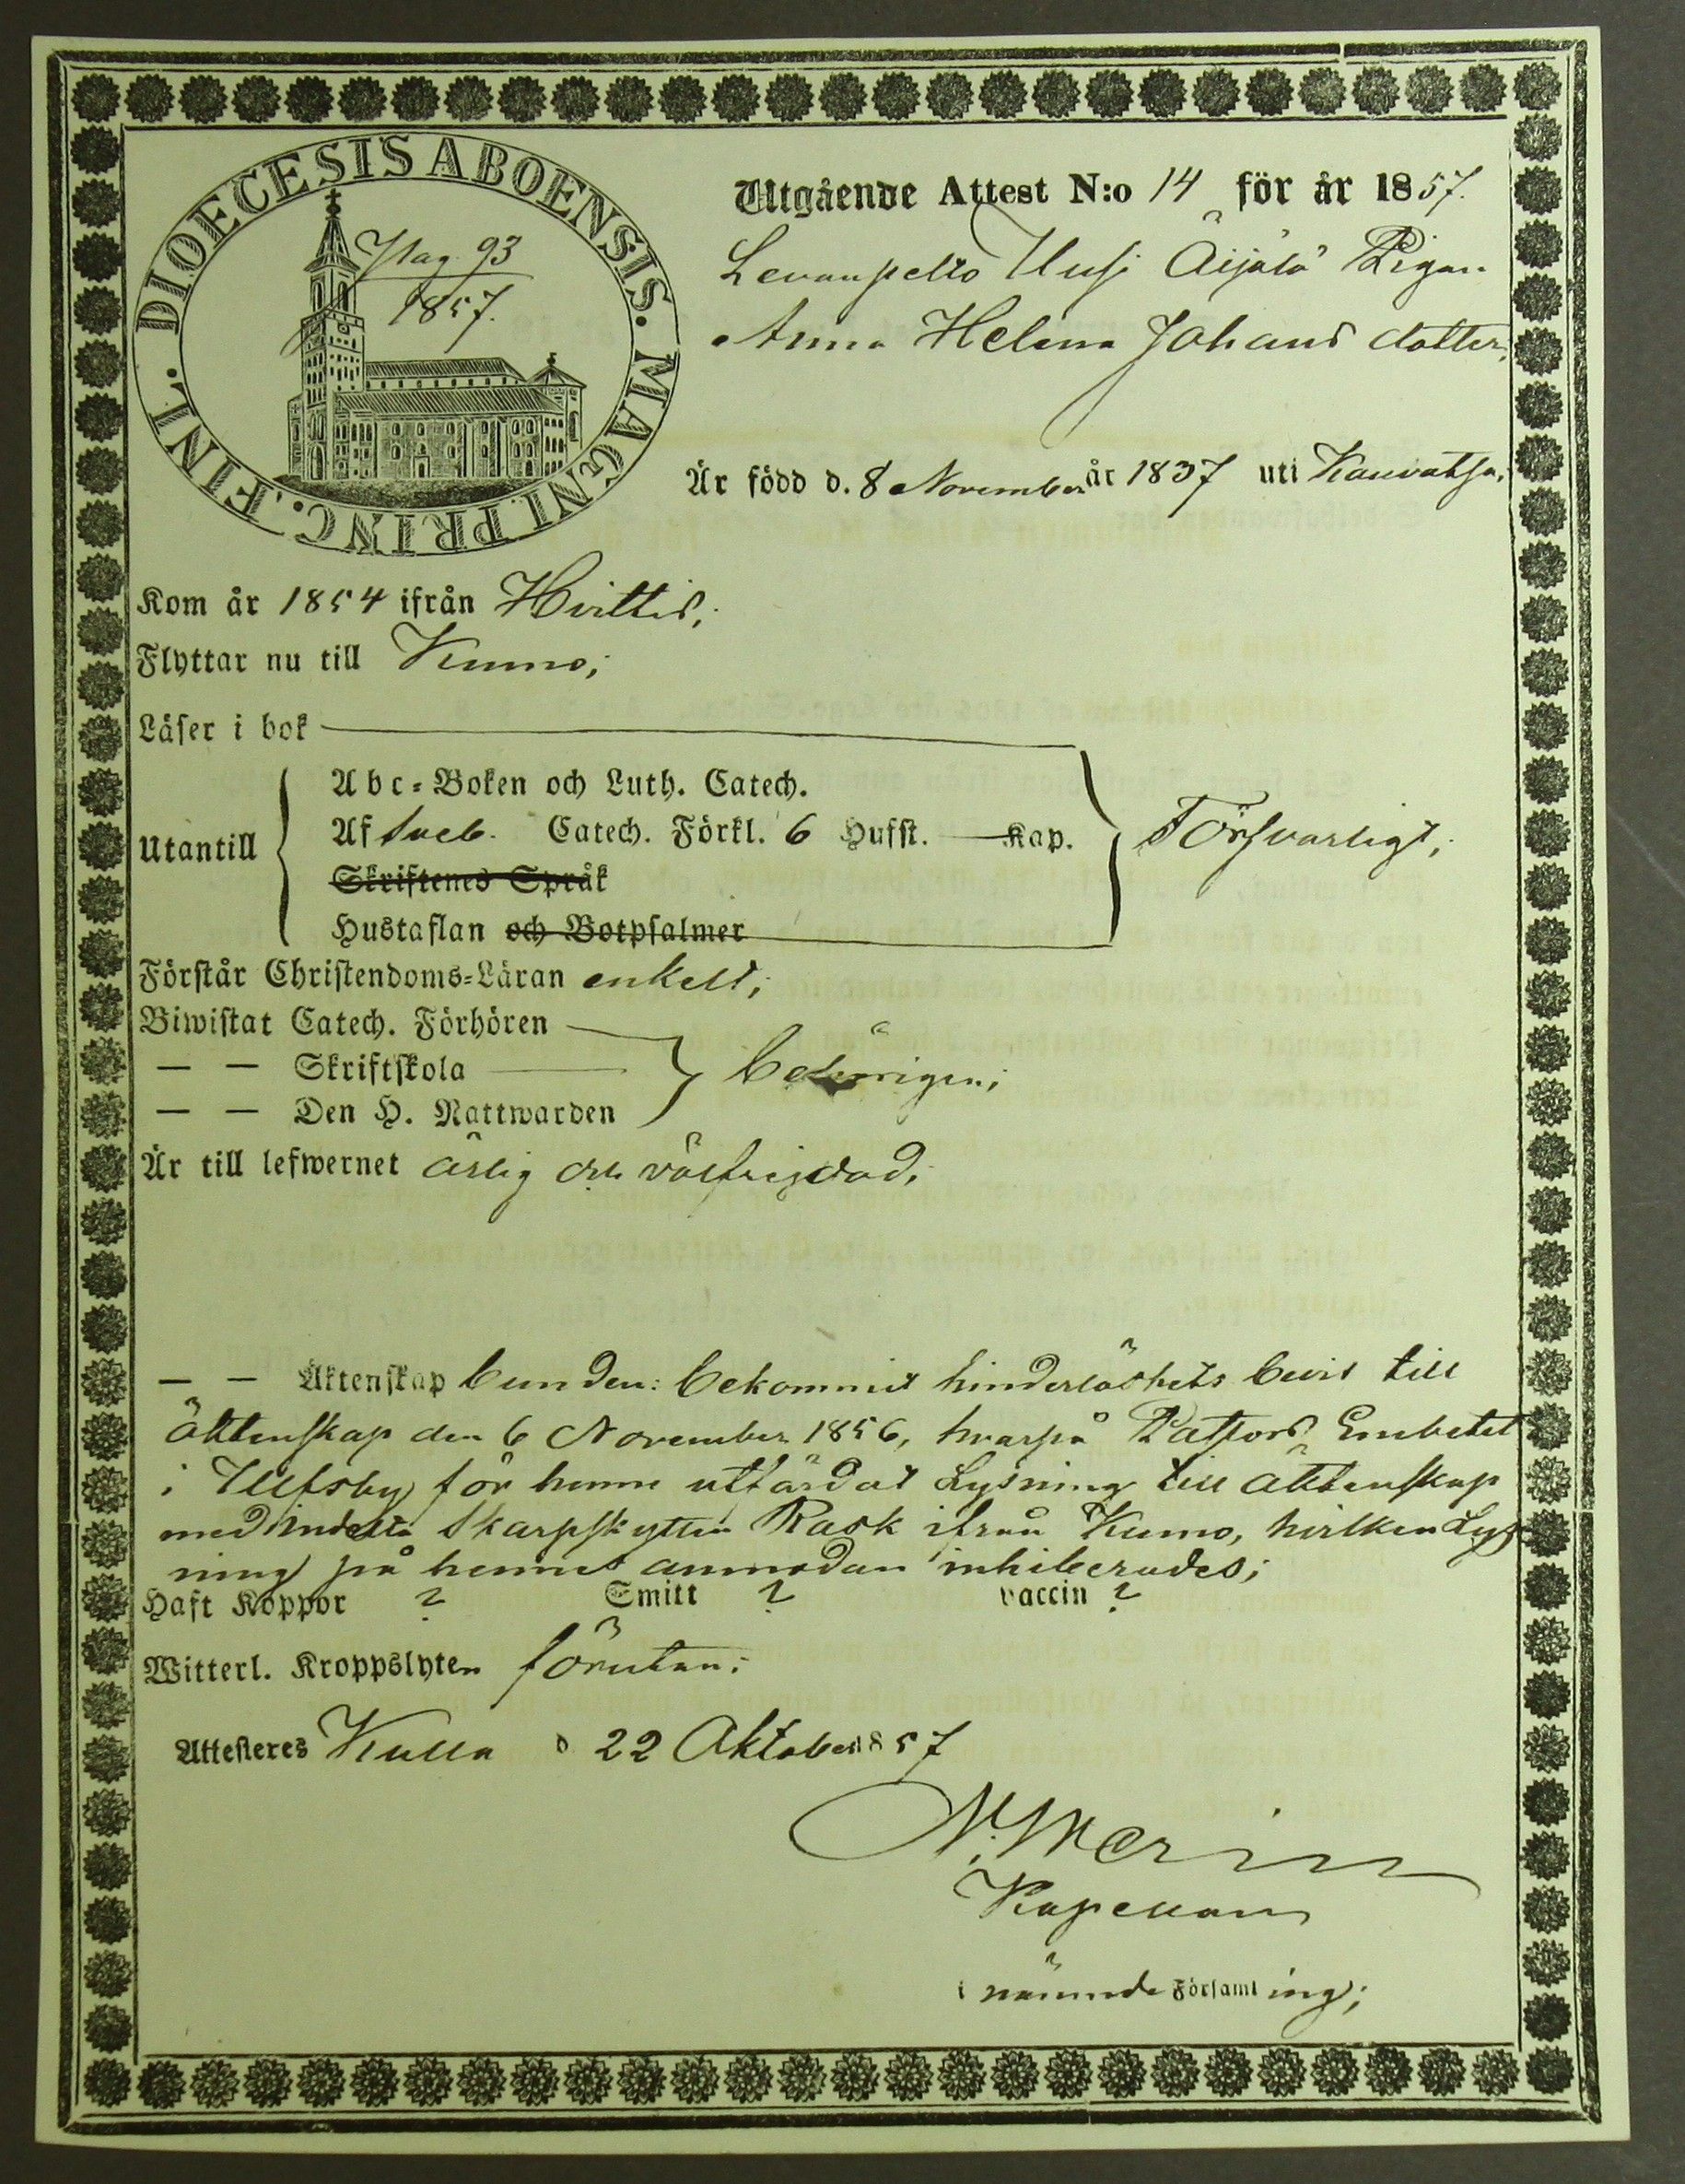 DIOECESIS ABOENSIS. MAGNI PRINC. FINL.
93
1857.
Utgående Attest N:o 14 för år 1857.
Levanpelto Uusi Äijälä Pigan
Anna Helena Johans dotter,
Är född d. 8 November år 1837 uti Kauvatsa,
Kom år 1854 ifrån Hvittis,
Flyttar nu till Kumo;
Läser i bok
Utantill
Abc-Boken och Luth. Catech.
Af Sveb. Catech. Förkl. 6 Hufst. — Kap.
Skriftenes Språk
Hustaflan och Botpsalmer
Försvarligt;
Förstår Christendoms-Läran enkelt;
Biwistat Catech. Förhören
— — Skriftskola
— — Den H. Nattwarden
behörigen;
Är till lefwernet ärlig och välfrejdad;
— — Äktenskap bunden: bekommit hinderlöshets bevis till
äktenskap den 6 November 1856, hvarpå Pastors Embetet
i Ulfsby för henne utfärdat Lysning till äktenskap
med indelta Skarpskytten Rask ifrån Kumo, hvilken Lys-
ning på hennes anmodan inhiberades;
Haft Koppor ? Smitt ? vaccin ?
Witterl. Kroppslyten förutan;
Attesteres Kulla d 22 Oktober 1857
N. Merin
Kapellan
i nämnde Församling;